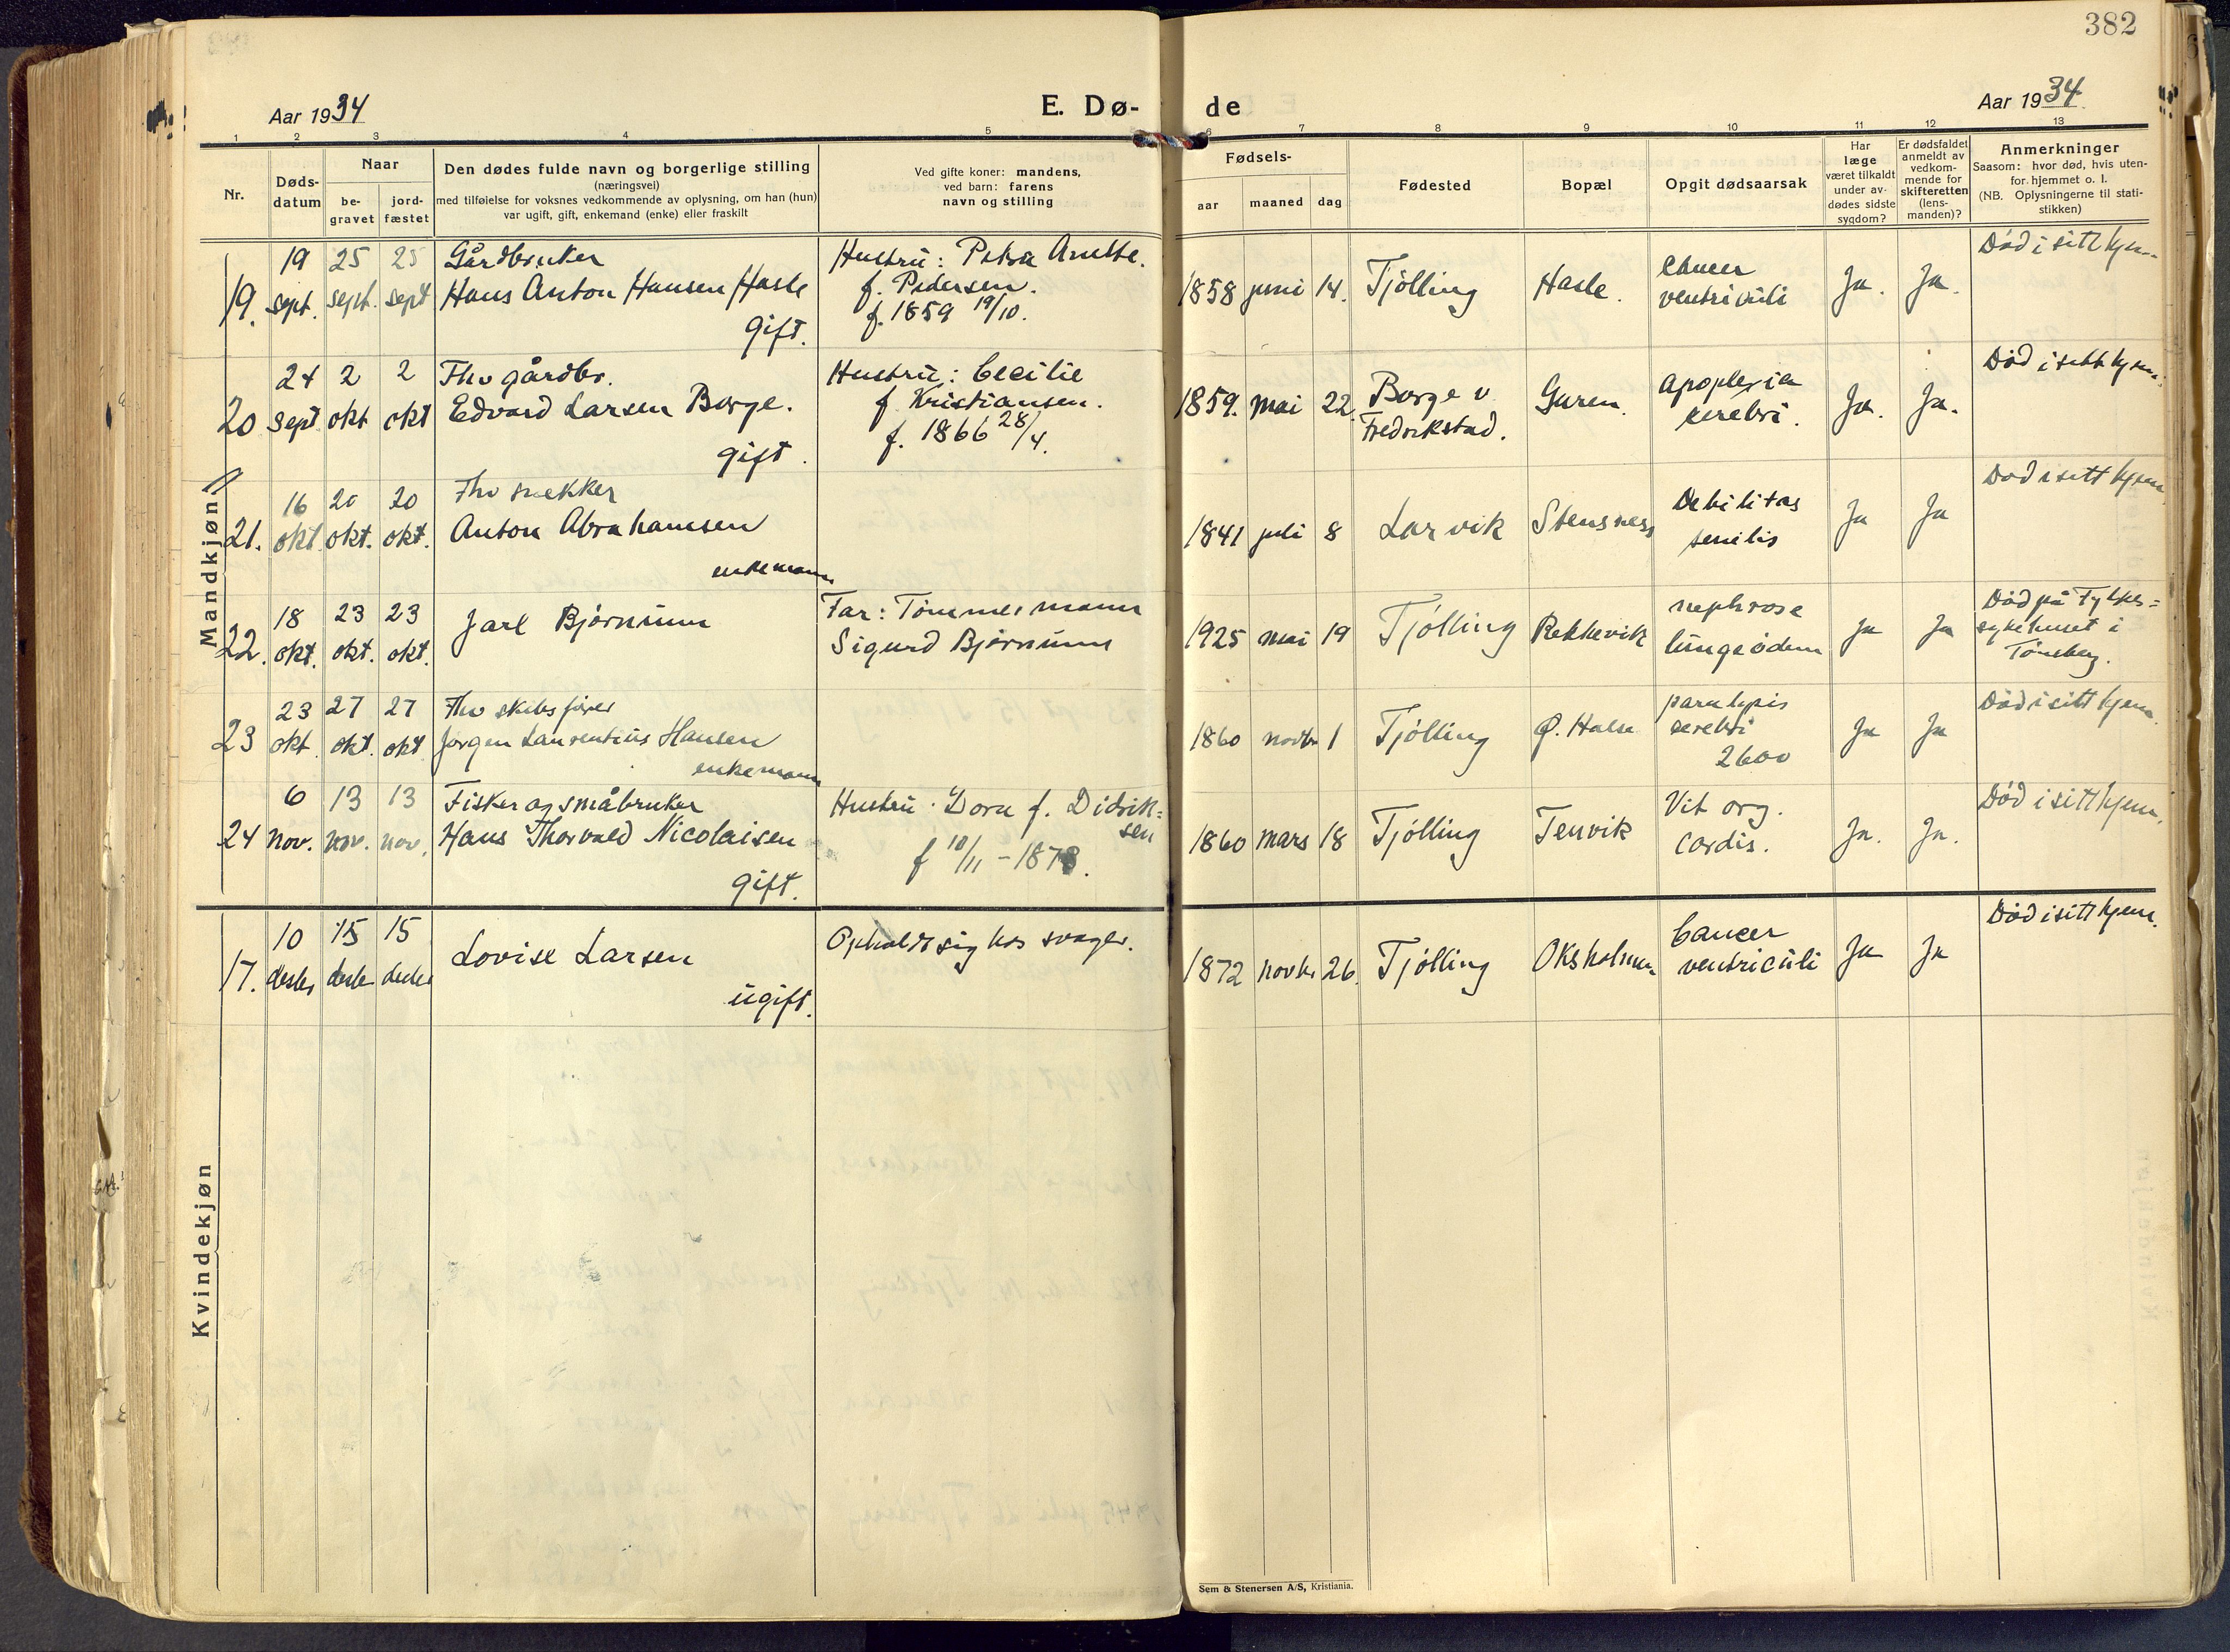 382
Aar 1934
E. Dø-
de
Aar 1934
1 2 3 4 5 6 7 8 9 10 11 12 13
Nr.
Døds-
datum
Naar
be-
gravet
jord-
fæstet
Den dødes fulde navn og borgerlige stilling
(næringsvei)
med tilføielse for voksnes vedkommende av oplysning, om han (hun)
var ugift, gift, enkemand (enke) eller fraskilt
Ved gifte koner: mandens,
ved barn: farens
navn og stilling
Fødsels-
aar maaned dag
Fødested
Bopæl
Opgit dødsaarsak
Har
læge
været tilkaldt
under av-
dødes sidste
sygdom?
Er dødsfaldet
anmeldt av
vedkom-
mende for
skifteretten
(lens-
manden)?
Anmerkninger
Saasom: hvor død, hvis uten-
for hjemmet o. l.
(NB. Oplysningerne til stati-
stikken)
Mandkjøn
19.
19
sept.
25
sept.
25
sept
Gårdbruker
Hans Anton Hansen Hasle
gift.
Hustru: Petra Anette.
f. Pedersen.
f. 1859 19/10.
1858 juni 14.
Tjølling
Hasle.
Cancer
ventriculi
Ja.
Ja.
Død i sitt hjem
20
24
sept
2
okt
2
okt
Fhv gårdbr.
Edvard Larsen Borge.
gift.
Hustru: Cecilie
f. Kristiansen.
f. 1866 28/4.
1859. mai 22.
Borge v
Fredrikstad.
Guren.
Apoplexia
cerebri.
Ja.
Ja.
Død i sitt hjem.
21.
16
okt
20
okt.
20
okt.
Fhv snekker
Anton Abrahamsen
enkemann
1841 juli 8
Larvik
Stensnes
Debilitas
senilis
Ja
Ja
Død i sitt hjem
22.
18
okt.
23
okt.
23
okt.
Jarl Bjørnum
Far: Tømmermann
Sigurd Bjørnum
1925 mai 19
Tjølling
Rekkevik
nephrose
lungeødem
Ja
Ja
Død på Fylkes=
sykehuset i
Tønsberg.
23
23
okt.
27
okt.
27
okt
Fhv skibsfører
Jørgen Laurentius Hansen
enkemann
1860 novbr 1
Tjølling
Ø. Halse
paralysis
cerebri
2600
Ja
Ja
Død i sitt hjem.
24
6
nov.
13
nov.
13
nov.
Fisker og småbruker
Hans Thorvald Nicolaisen
gift.
Hustru: Dora f. Didrik=
sen
f 10/11 - 1878.
1860 mars 18
Tjølling
Tenvik
Vit org.
cordis.
Ja.
Ja.
Død i sitt hjem.
Kvindekjøn
17.
10
desbr
15
desbr
15
desbr
Lovise Larsen
ugift.
Opholdt sig hos svoger.
1872 novbr 26.
Tjølling
Oksholmen
Cancer
ventriculi
Ja
Ja
Død i sitt hjem.
Sem & Stenersen A/S, Kristiania.